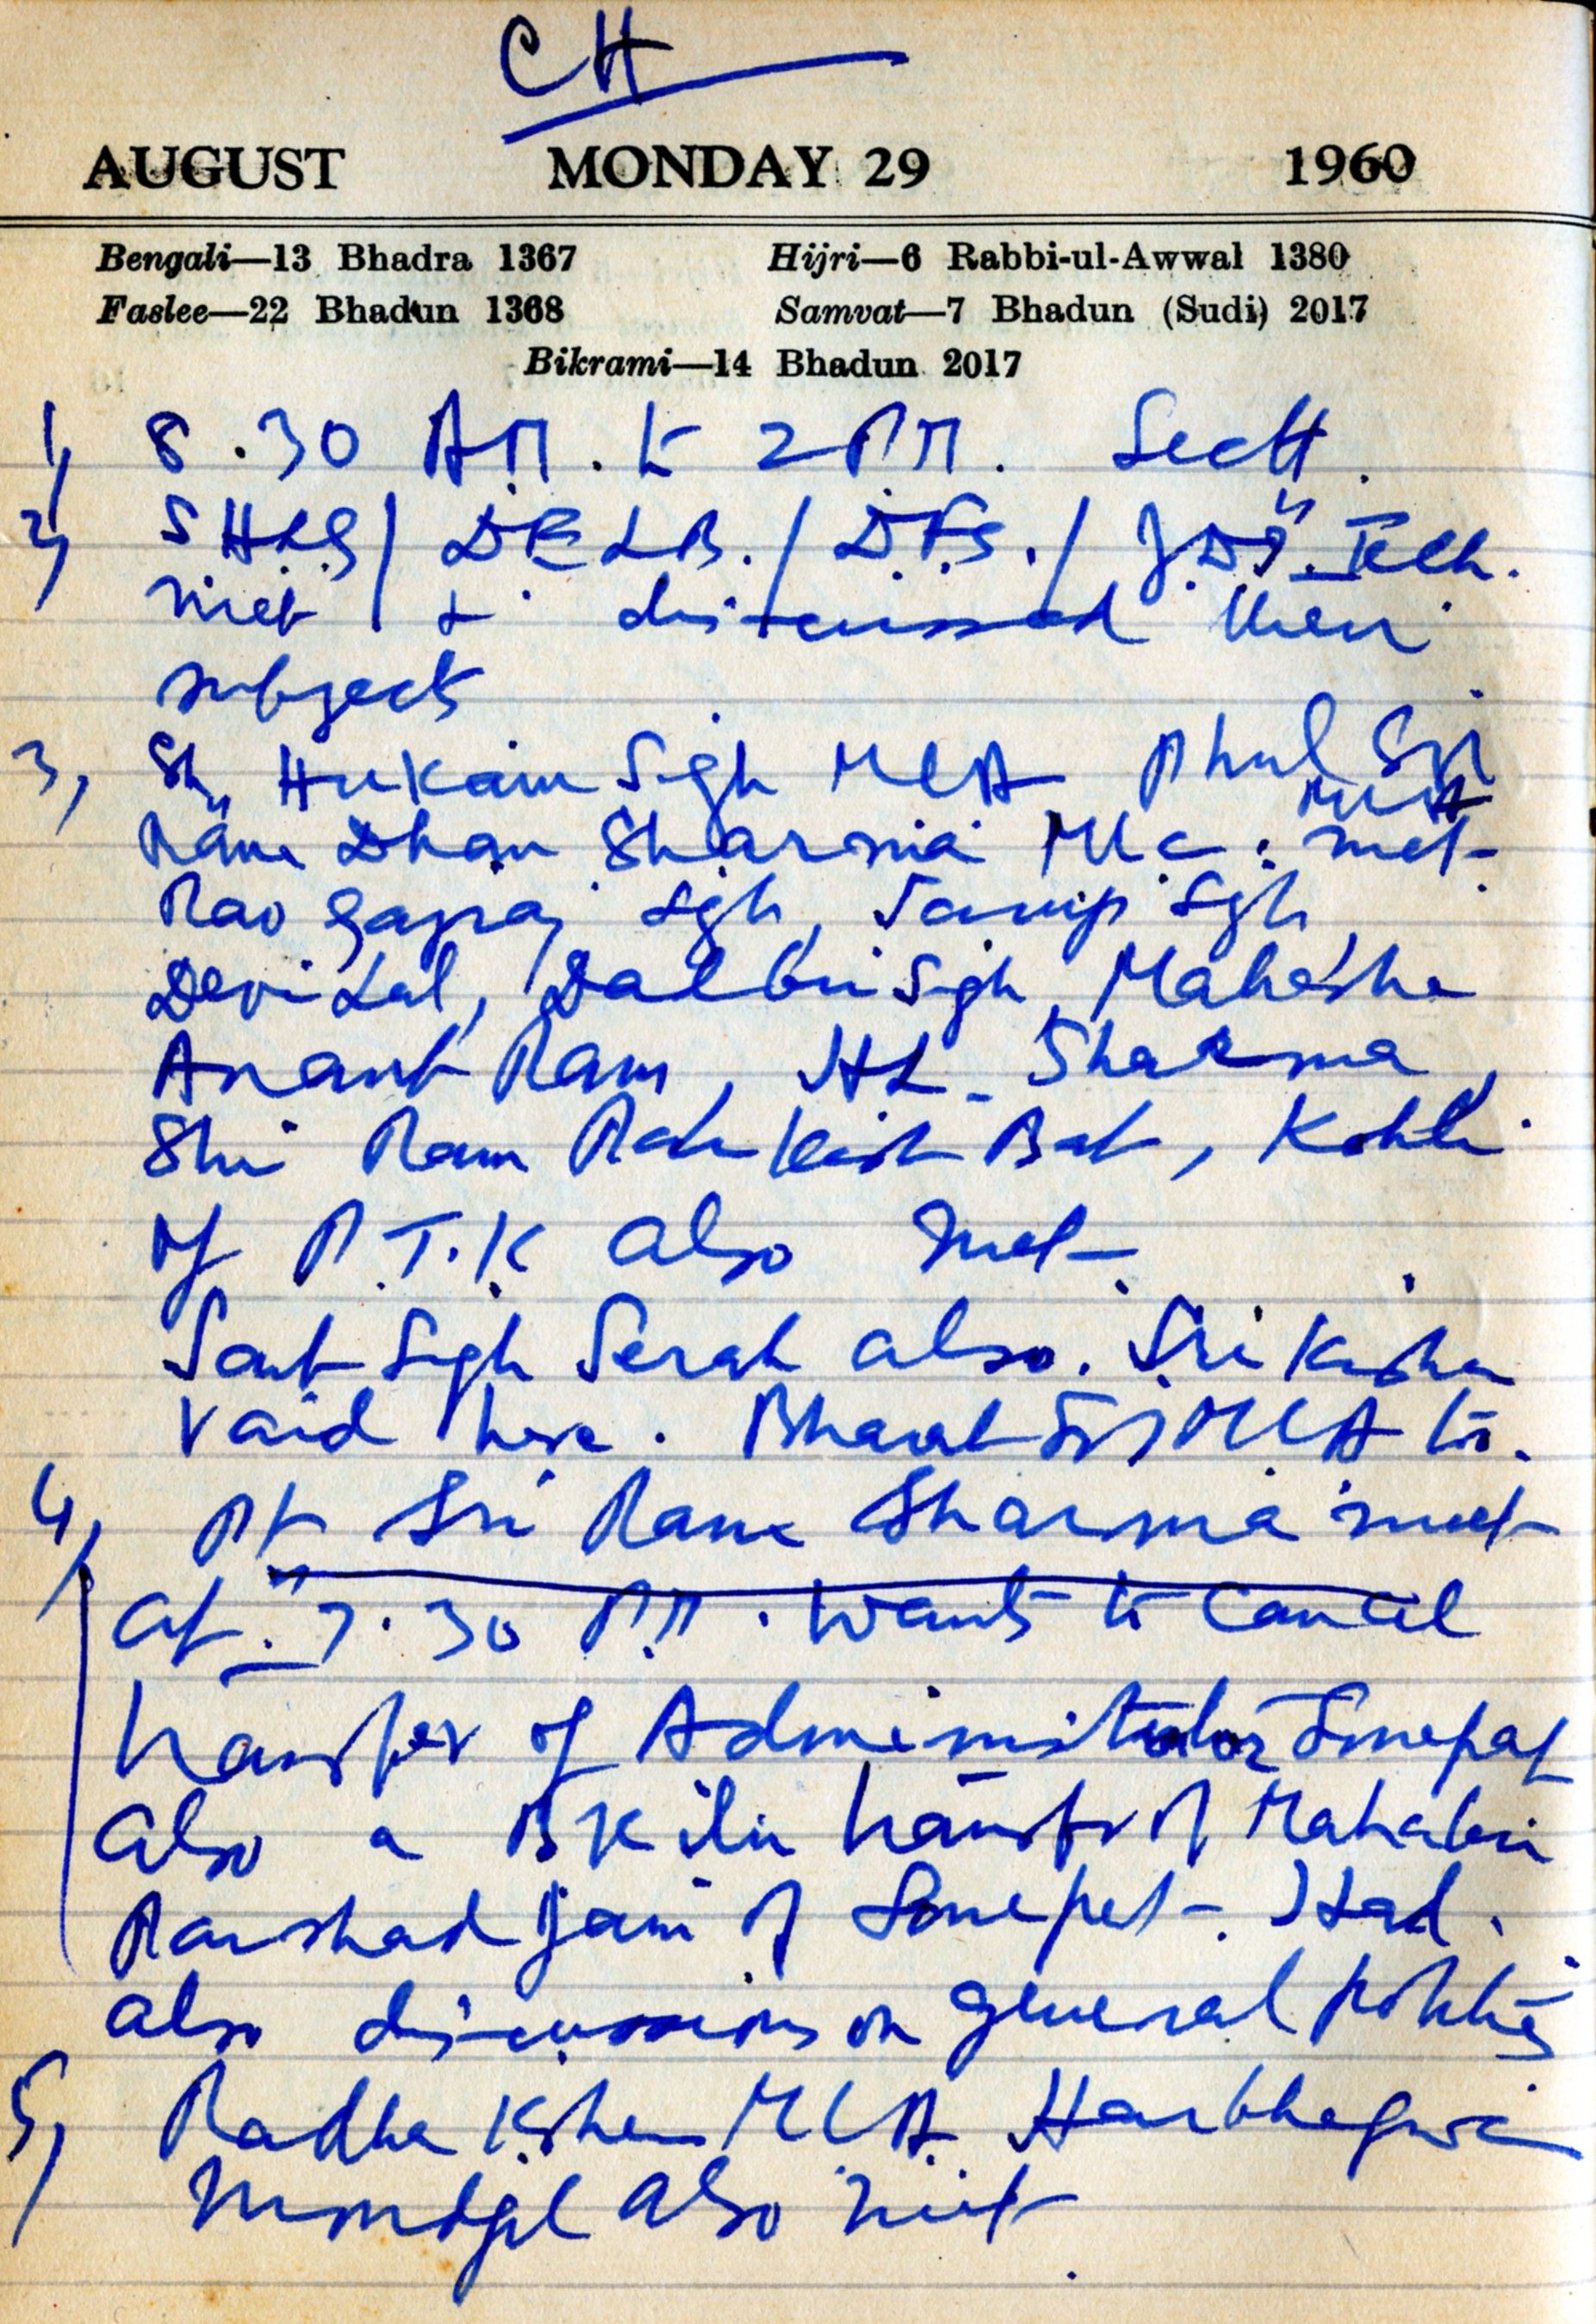 CH
AUGUST MONDAY 29 1960
Bengali—13 Bhadra 1367 Hijri—6 Rabbi-ul-Awwal 1380
Faslee—22 Bhadun 1368 Samvat—7 Bhadun (Sudi) 2017
Bikrami—14 Bhadun 2017
1, 8.30 AM. to 2 PM. Sectt.
2, SHLG / DELB. / DFS. /
met & discussed their
subjects
3, Sh Hukam Sigh MLA Phul
MLA
Rama Dhan Sharma MLC: met
Rao Gajraj Sgh, Sarup Sgh
Devi Lal, Dalbir Sigh, Mahashe
Anant Ram, HL. Sharma,
Shri Ram Bat, Kohli
of P.T.K also met
Sant Sigh Serah also. Sri Kishan
Vaid here. Bharat MLA to.
4, Pt Sri Rama Sharma met
at 7.30 P.M. wants to cancel
transfer of Administrator Sonepat
also a transfer of Mahabir
Parshad Jain of Sonepet. Had
also discussions on general politics
5, Radha Kishen MLA Harbhagwan
also met